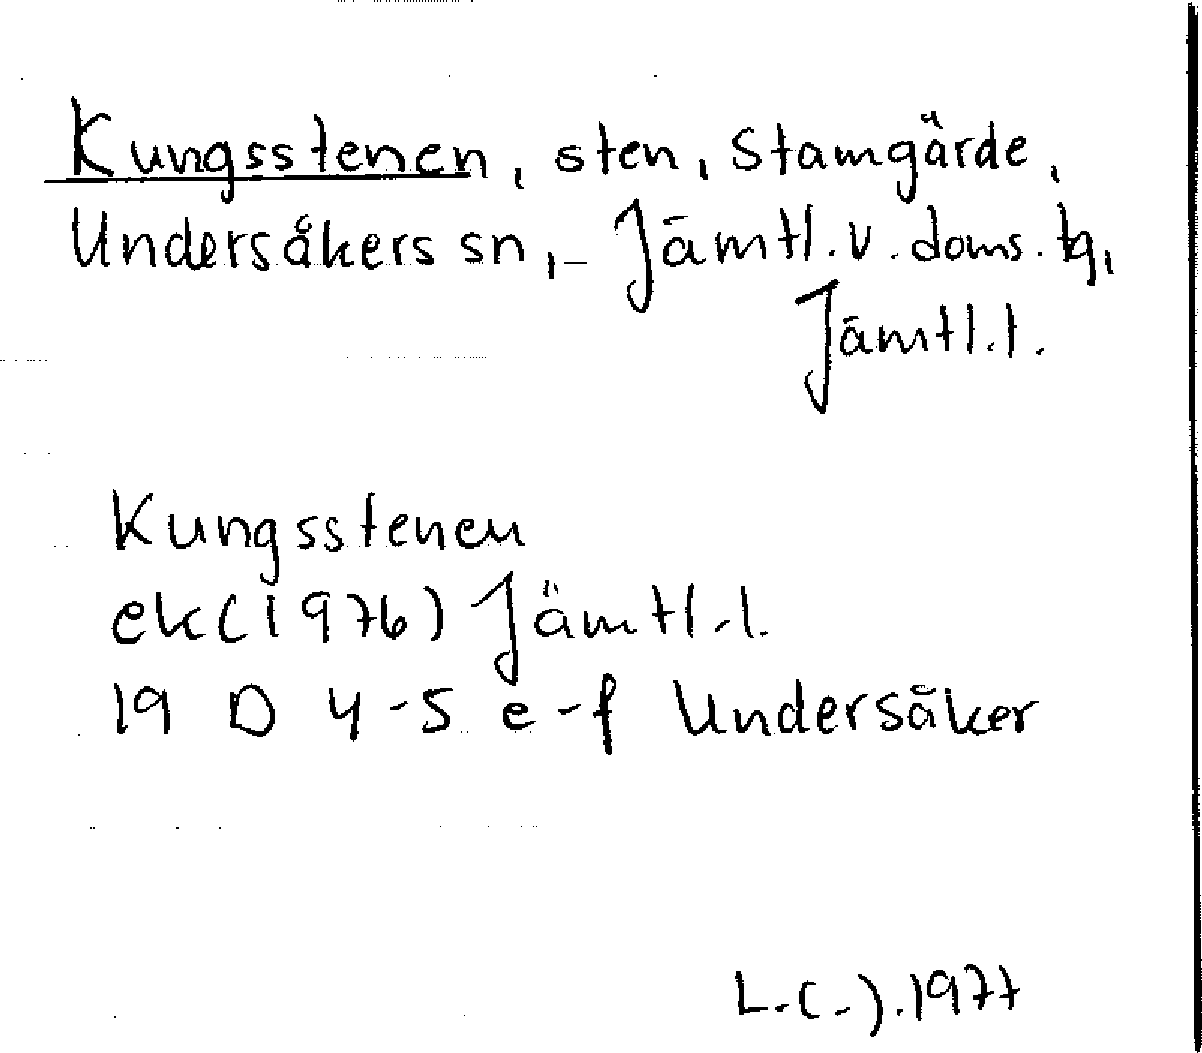 Kungsstenen, sten, Stamgärde,
Undersåkers sn, Jämtl. v. doms. tg,
Jämtl. l.
Kungsstenen
ek (1976) Jämtl. l.
19 D 4-5 e-f Undersåker
L.(-).1977